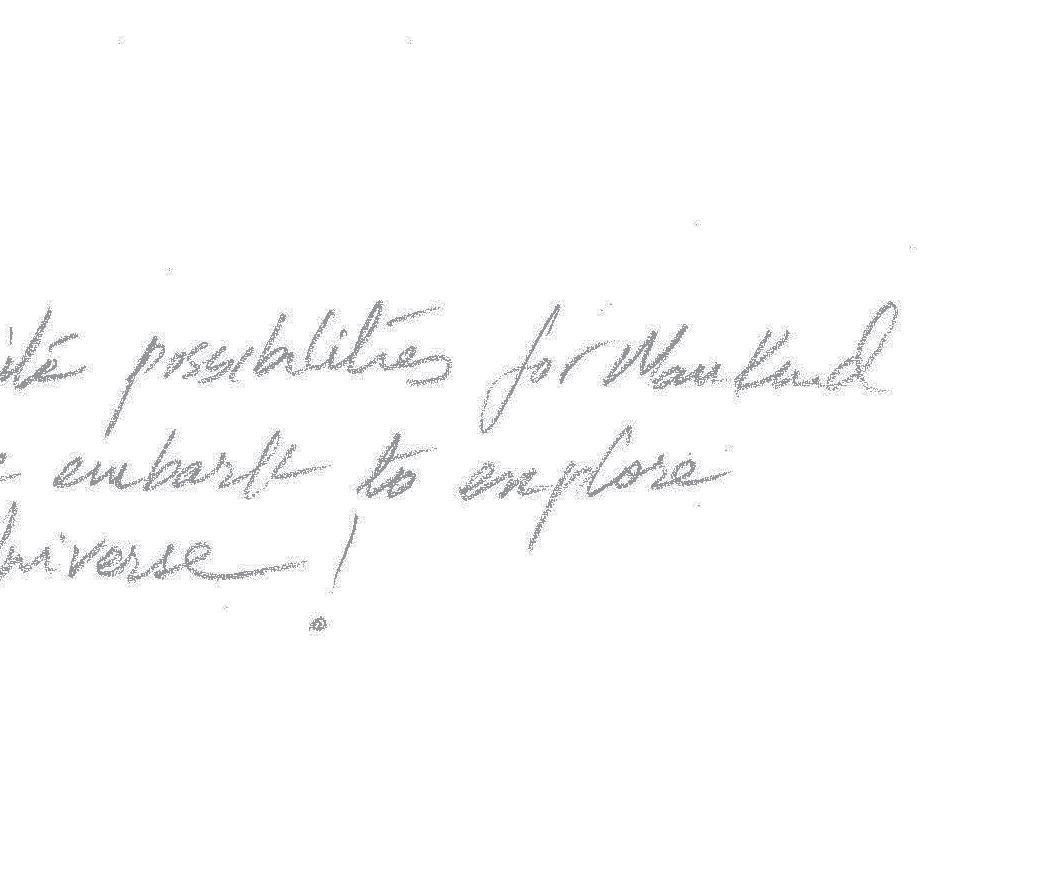 possibilities for Mankind
embark to explore
Universe !